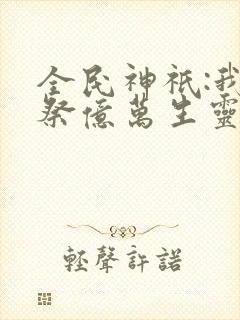 全民神祇:我
祭億萬生靈
輕聲許諾